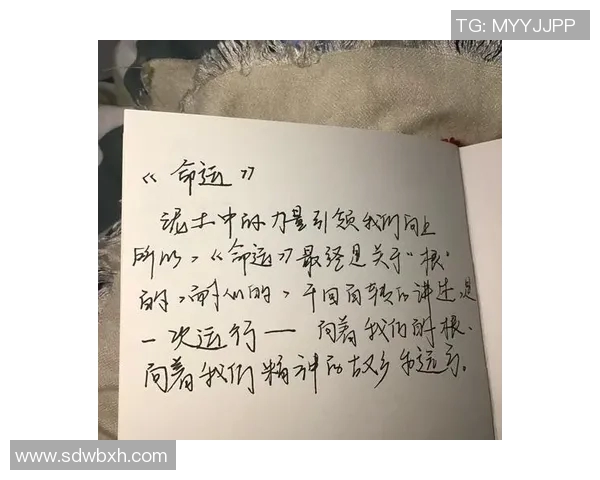 TG: MYYJJPP
《命运》
泥土中的力量引领我们向上
所以,《命运》最终是关于“根”
的,耐人的,千回百转的讲述,是
一次运行—向着我们的根、
向着我们精神的故乡的运行。
www.sdwbxh.com